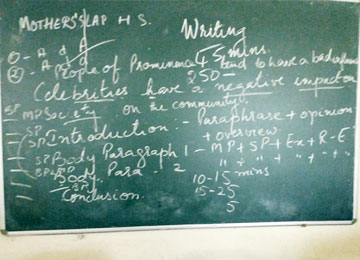 MOTHERS' LAP H S.
Writing
45 mins.
② - People of Prominence tend to have a bad influence
250 -
Celebrities have a negative impact on
Society. on the community.
Introduction - Paraphrase + opinion
+ overview
Body Paragraph 1 - MP + SP + Ex + R - E
Body Para. 2 " + " + " + " + "
Conclusion.
10 - 15 mins
15 - 25
5